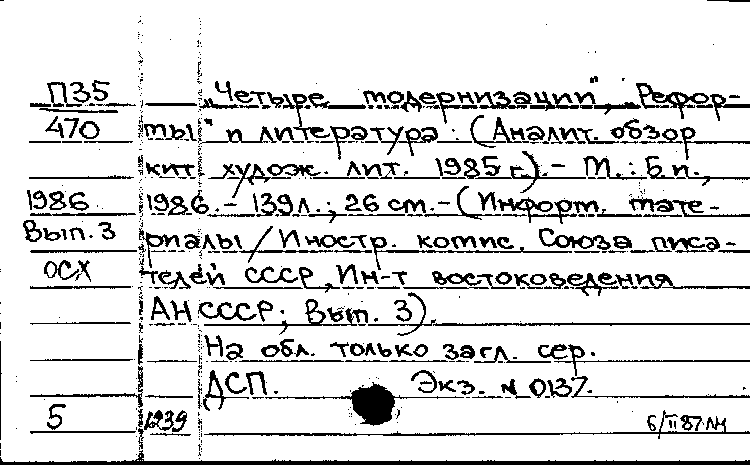 П35 „Четыре модернизации", „Рефор-
470 мы" и литература : (Аналит. обзор
кит. худож. лит. 1985 г.).- М. : Б.и.,
1986 1986.- 139л.; 26 см.- (Информ. мате-
Вып. 3 риалы / Иностр. комис. Союза писа-
ОСХ телей СССР, Ин-т востоковедения
АН СССР; Вып. 3).
На обл. только загл. сер.
ДСП. Экз. № 0137.
5 1239 6/II 87